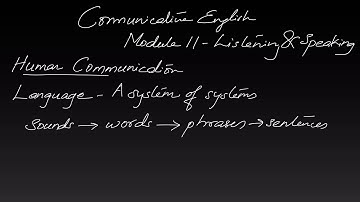 Communicative English
Module II - Listening & Speaking
Human Communication
Language - A system of systems
sounds → words → phrases → sentences